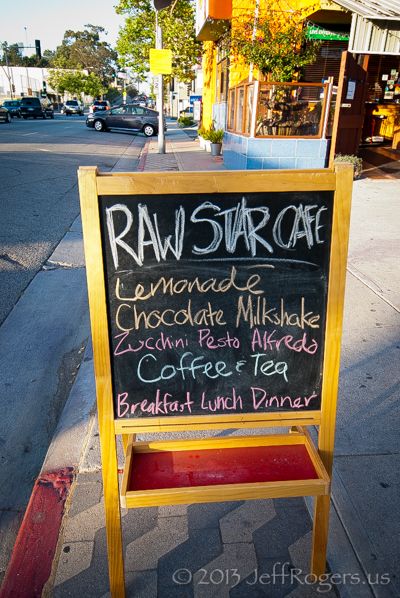 RAW STAR CAFE
Lemonade
Chocolate Milkshake
Zucchini Pesto Alfredo
Coffee & Tea
Breakfast Lunch Dinner
© 2013 JeffRogers.us